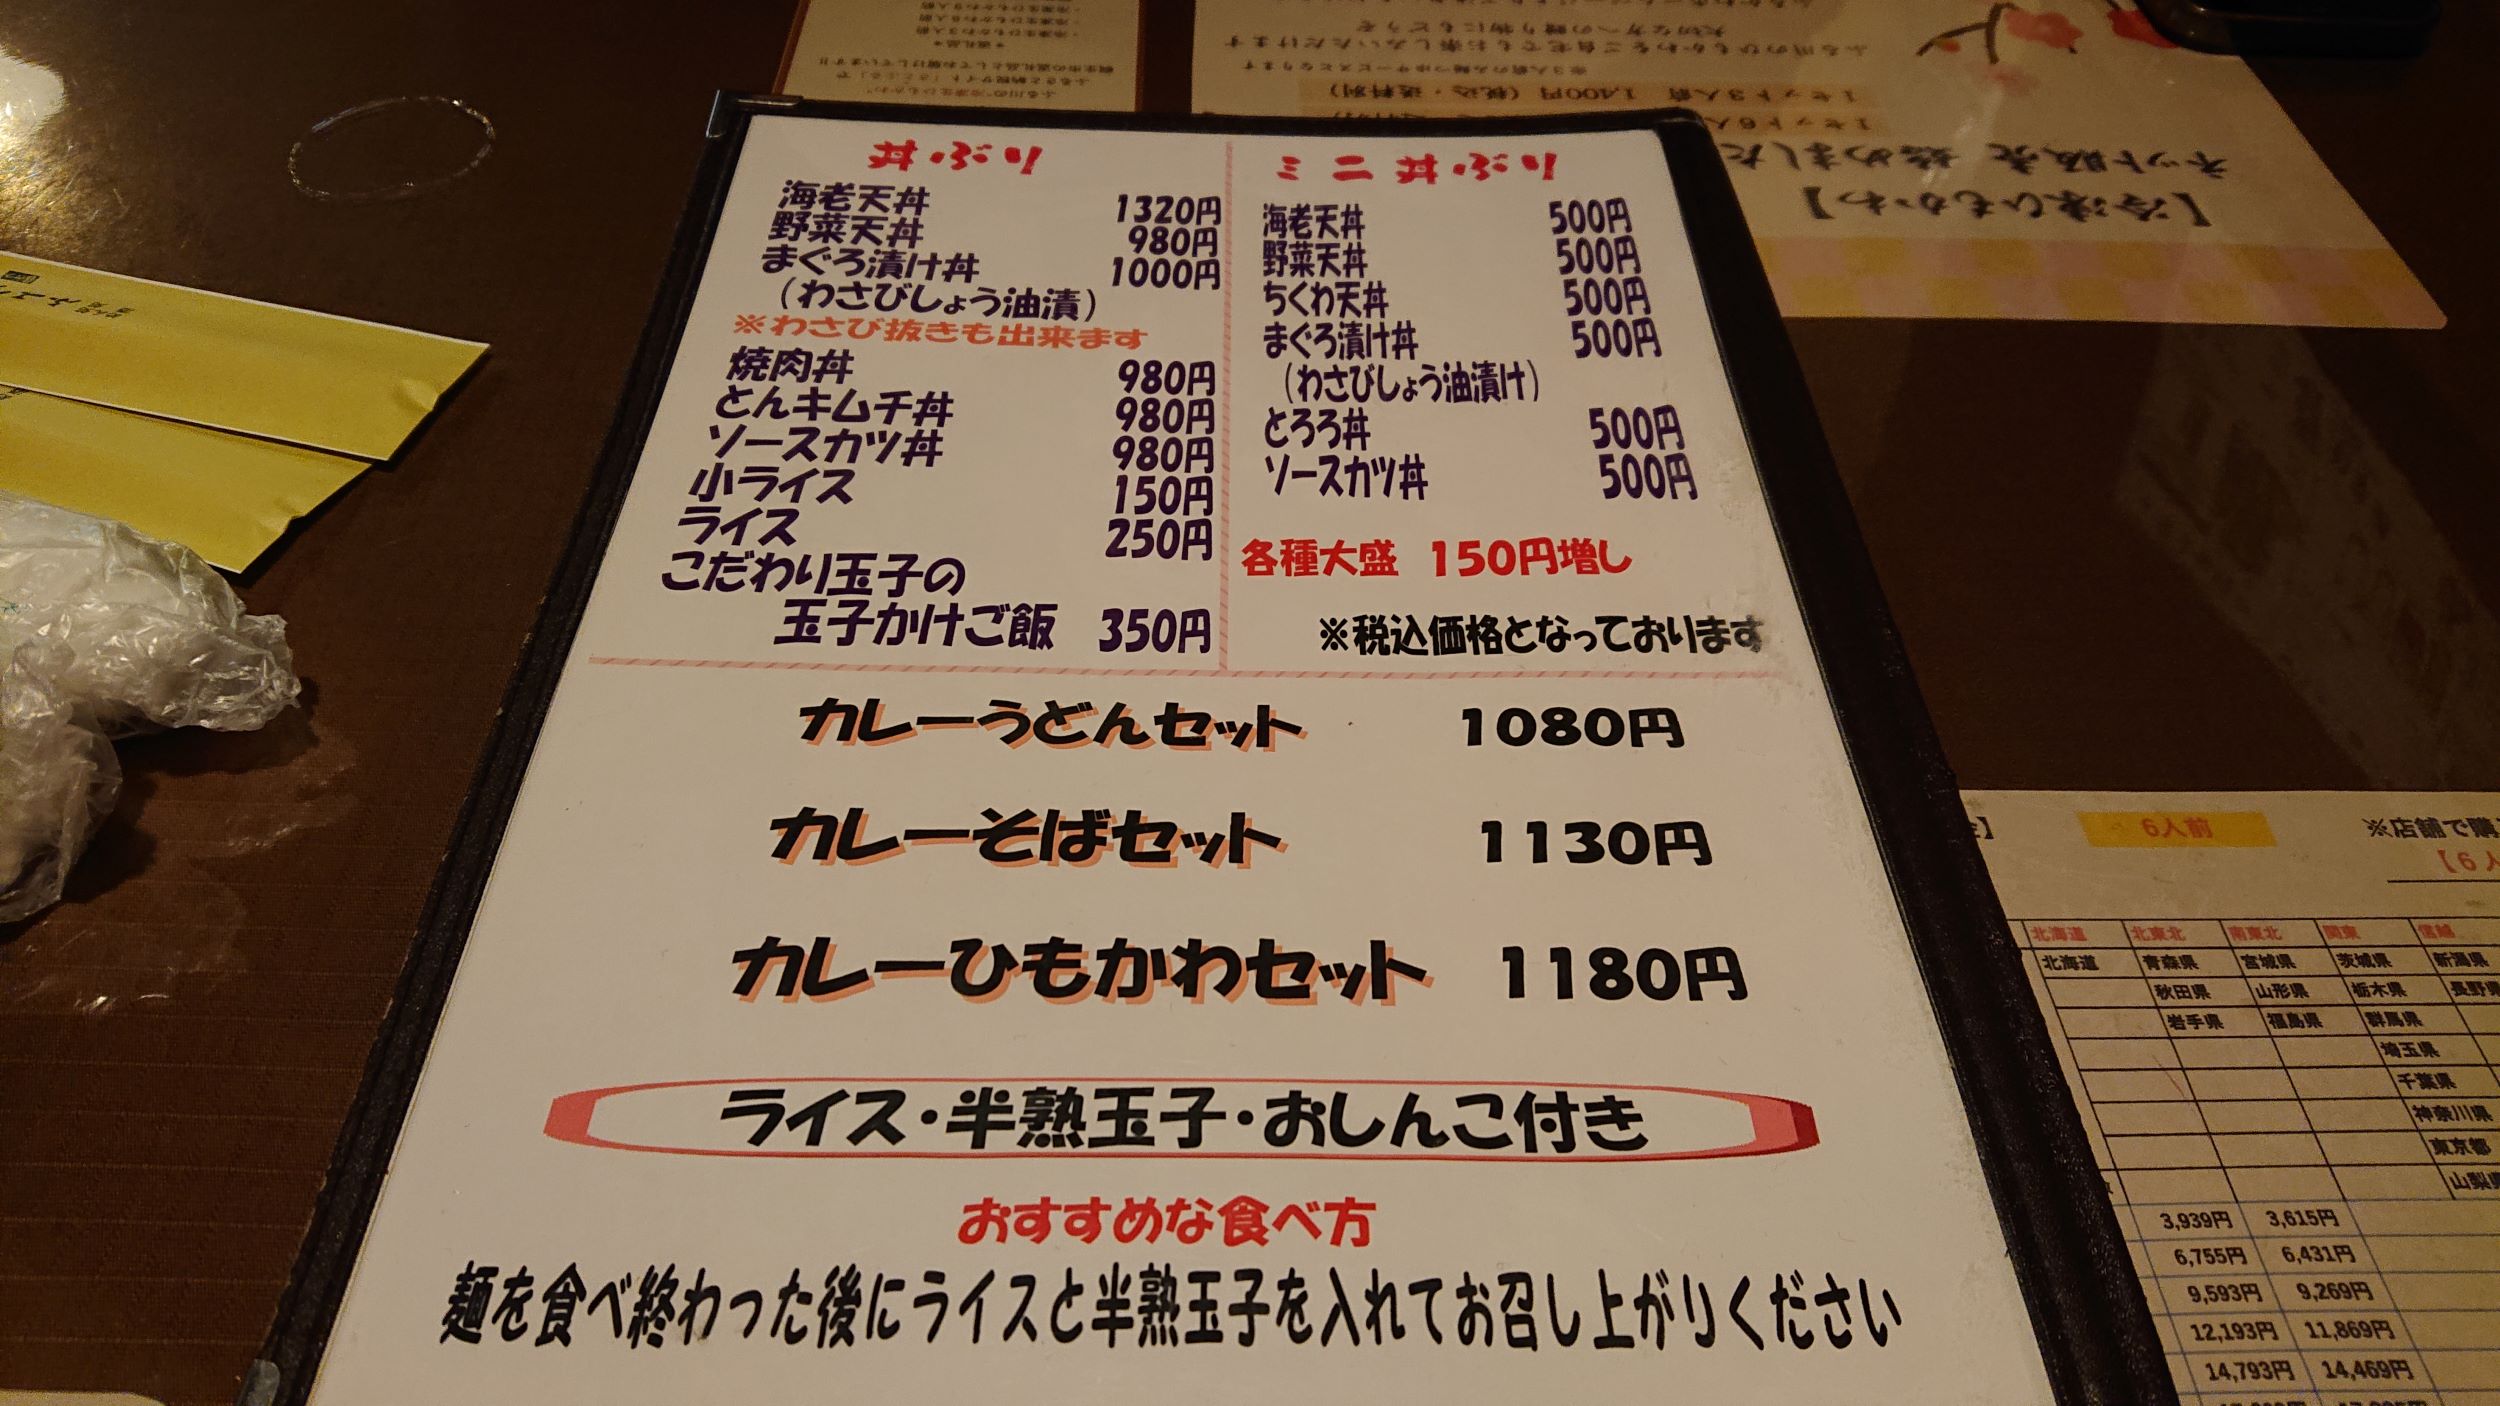 丼ぶり
海老天丼 1320円
野菜天丼 980円
まぐろ漬け丼 1000円
（わさびしょう油漬）
※わさび抜きも出来ます
焼肉丼 980円
とんキムチ丼 980円
ソースカツ丼 980円
小ライス 150円
ライス 250円
こだわり玉子の
玉子かけご飯 350円
ミニ丼ぶり
海老天丼 500円
野菜天丼 500円
ちくわ天丼 500円
まぐろ漬け丼 500円
（わさびしょう油漬け）
とろろ丼 500円
ソースカツ丼 500円
各種大盛 150円増し
※税込価格となっております
カレーうどんセット 1080円
カレーそばセット 1130円
カレーひもかわセット 1180円
ライス・半熟玉子・おしんこ付き
おすすめな食べ方
麺を食べ終わった後にライスと半熟玉子を入れてお召し上がりください
【冷凍ひもかわ】
ネット販売 始めました
1セット3人前 1,400円（税込・送料別）
大切な方への贈り物にもどうぞ
6人前
※店舗で購
【6人
北海道 北東北 南東北 関東 信越
北海道 青森県 宮城県 茨城県 新潟県
秋田県 山形県 栃木県 長野県
岩手県 福島県 群馬県
埼玉県
千葉県
神奈川県
東京都
山梨県
3,939円 3,615円
6,755円 6,431円
9,593円 9,269円
12,193円 11,869円
14,793円 14,469円